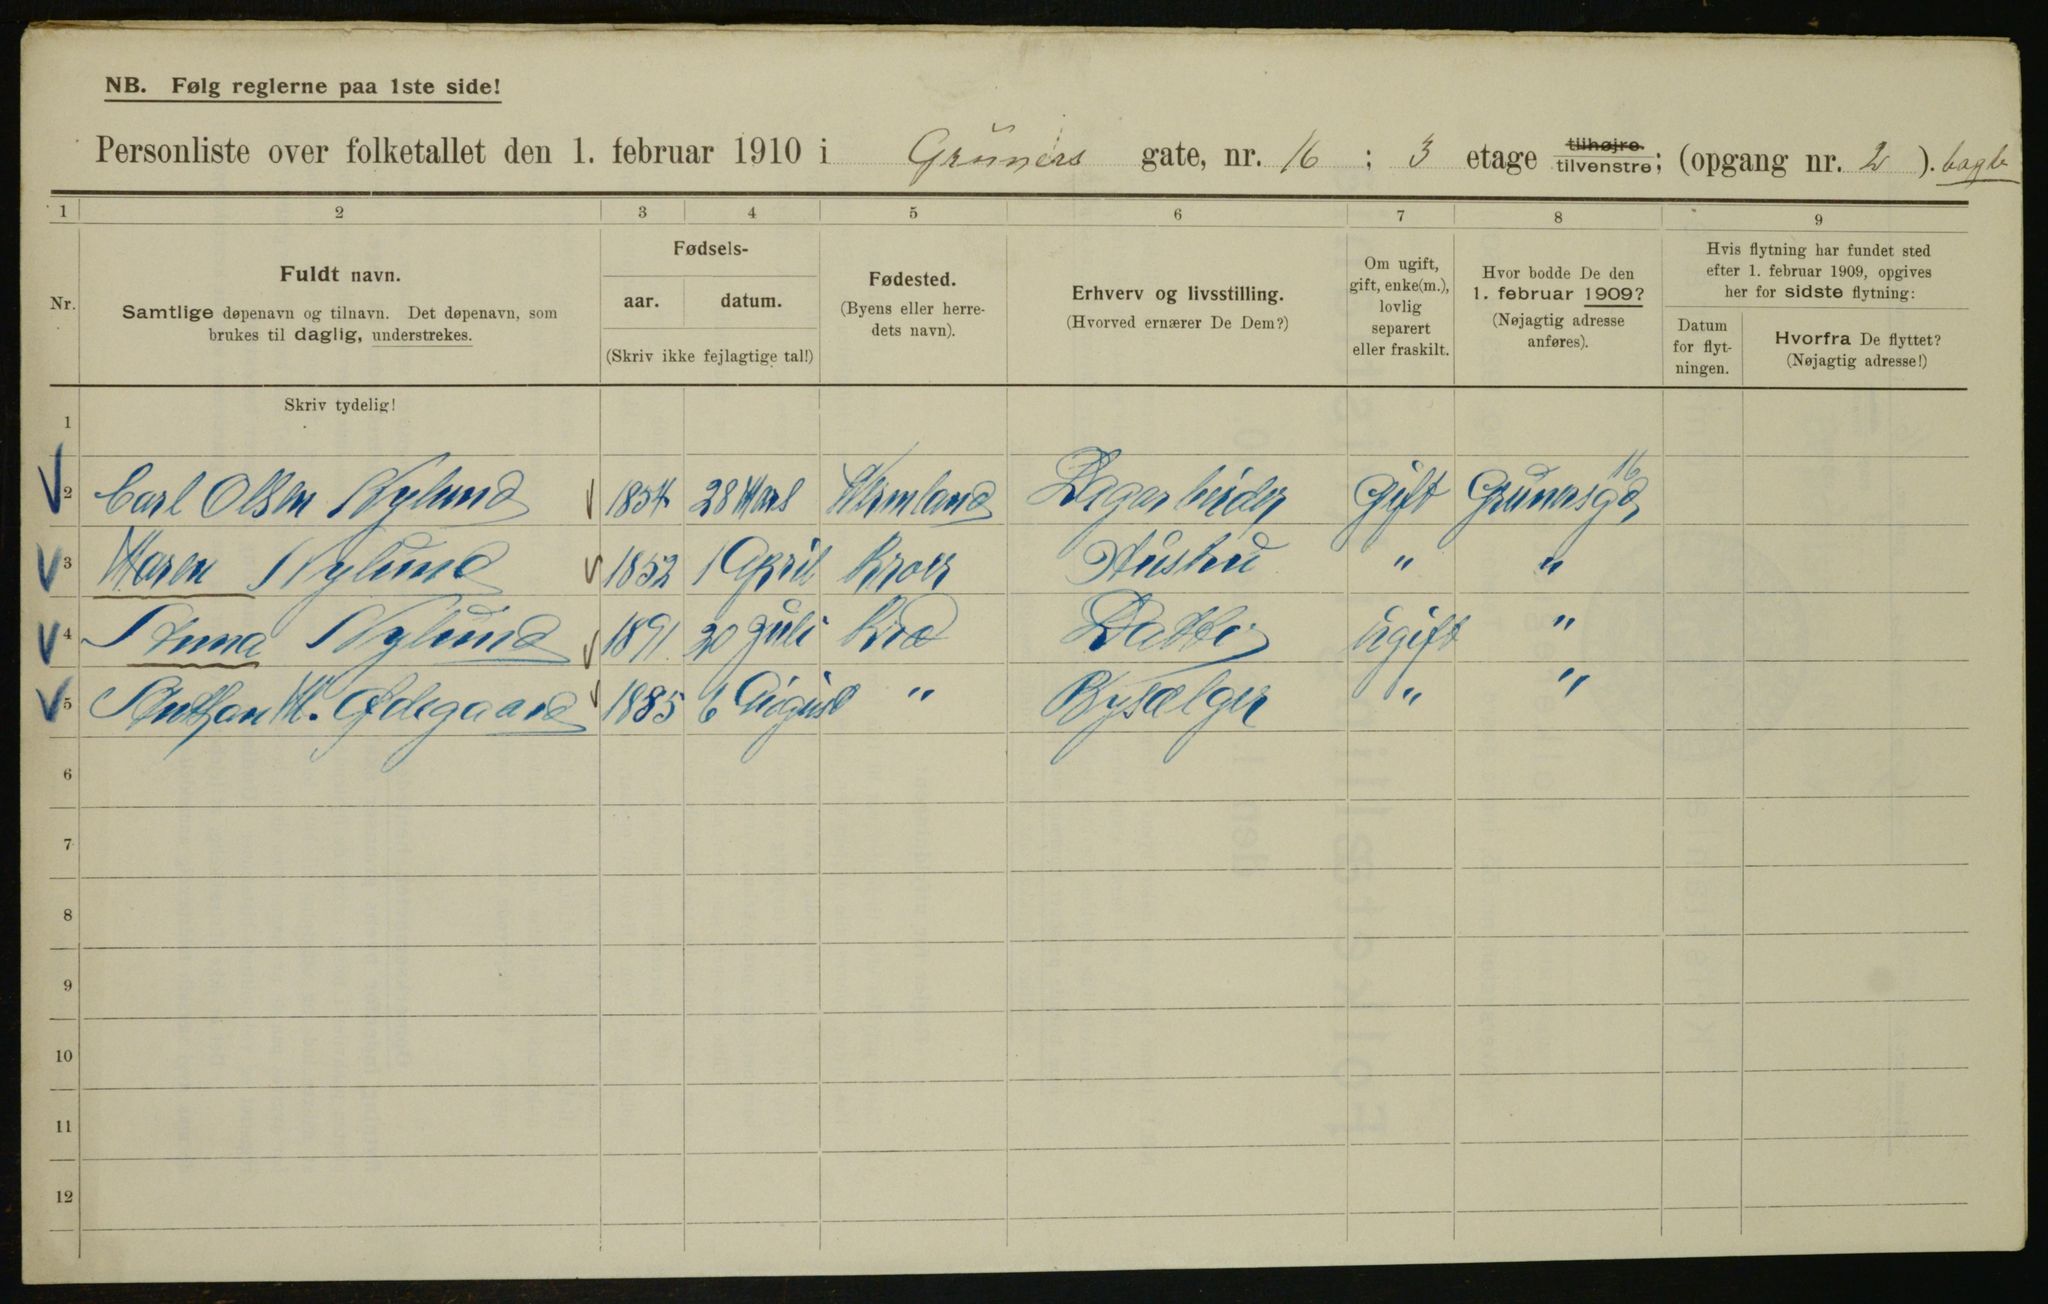 NB. Følg reglerne paa 1ste side!
Personliste over folketallet den 1. februar 1910 i Grüners gate, nr. 16 ; 3 etage tilhøjre. tilvenstre; (opgang nr. 2 ).
1 2 3 4 5 6 7 8 9
Nr.
Fuldt navn.
Samtlige døpenavn og tilnavn. Det døpenavn, som
brukes til daglig, understrekes.
Fødsels-
aar. datum.
(Skriv ikke fejlagtige tal!)
Fødested.
(Byens eller herre-
dets navn).
Erhverv og livsstilling.
(Hvorved ernærer De Dem?)
Om ugift,
gift, enke(m.),
lovlig
separert
eller fraskilt.
Hvor bodde De den
1. februar 1909?
(Nøjagtig adresse
anføres).
Hvis flytning har fundet sted
efter 1. februar 1909, opgives
her for sidste flytning:
Datum
for flyt-
ningen.
Hvorfra De flyttet?
(Nøjagtig adresse!)
Skriv tydelig!
1
2 Carl Olsen Nylund 1854 28 Mars Wermland Dagarbeider Gift Grünersgd 16
3 Maren Nylund 1852 1 April Kroer Hustru " "
4 Anna Nylund 1891 20 Juli Kra Datter Ugift "
5 M. Ødegaard 1885 6 August " Bysælger " "
6
7
8
9
10
11
12